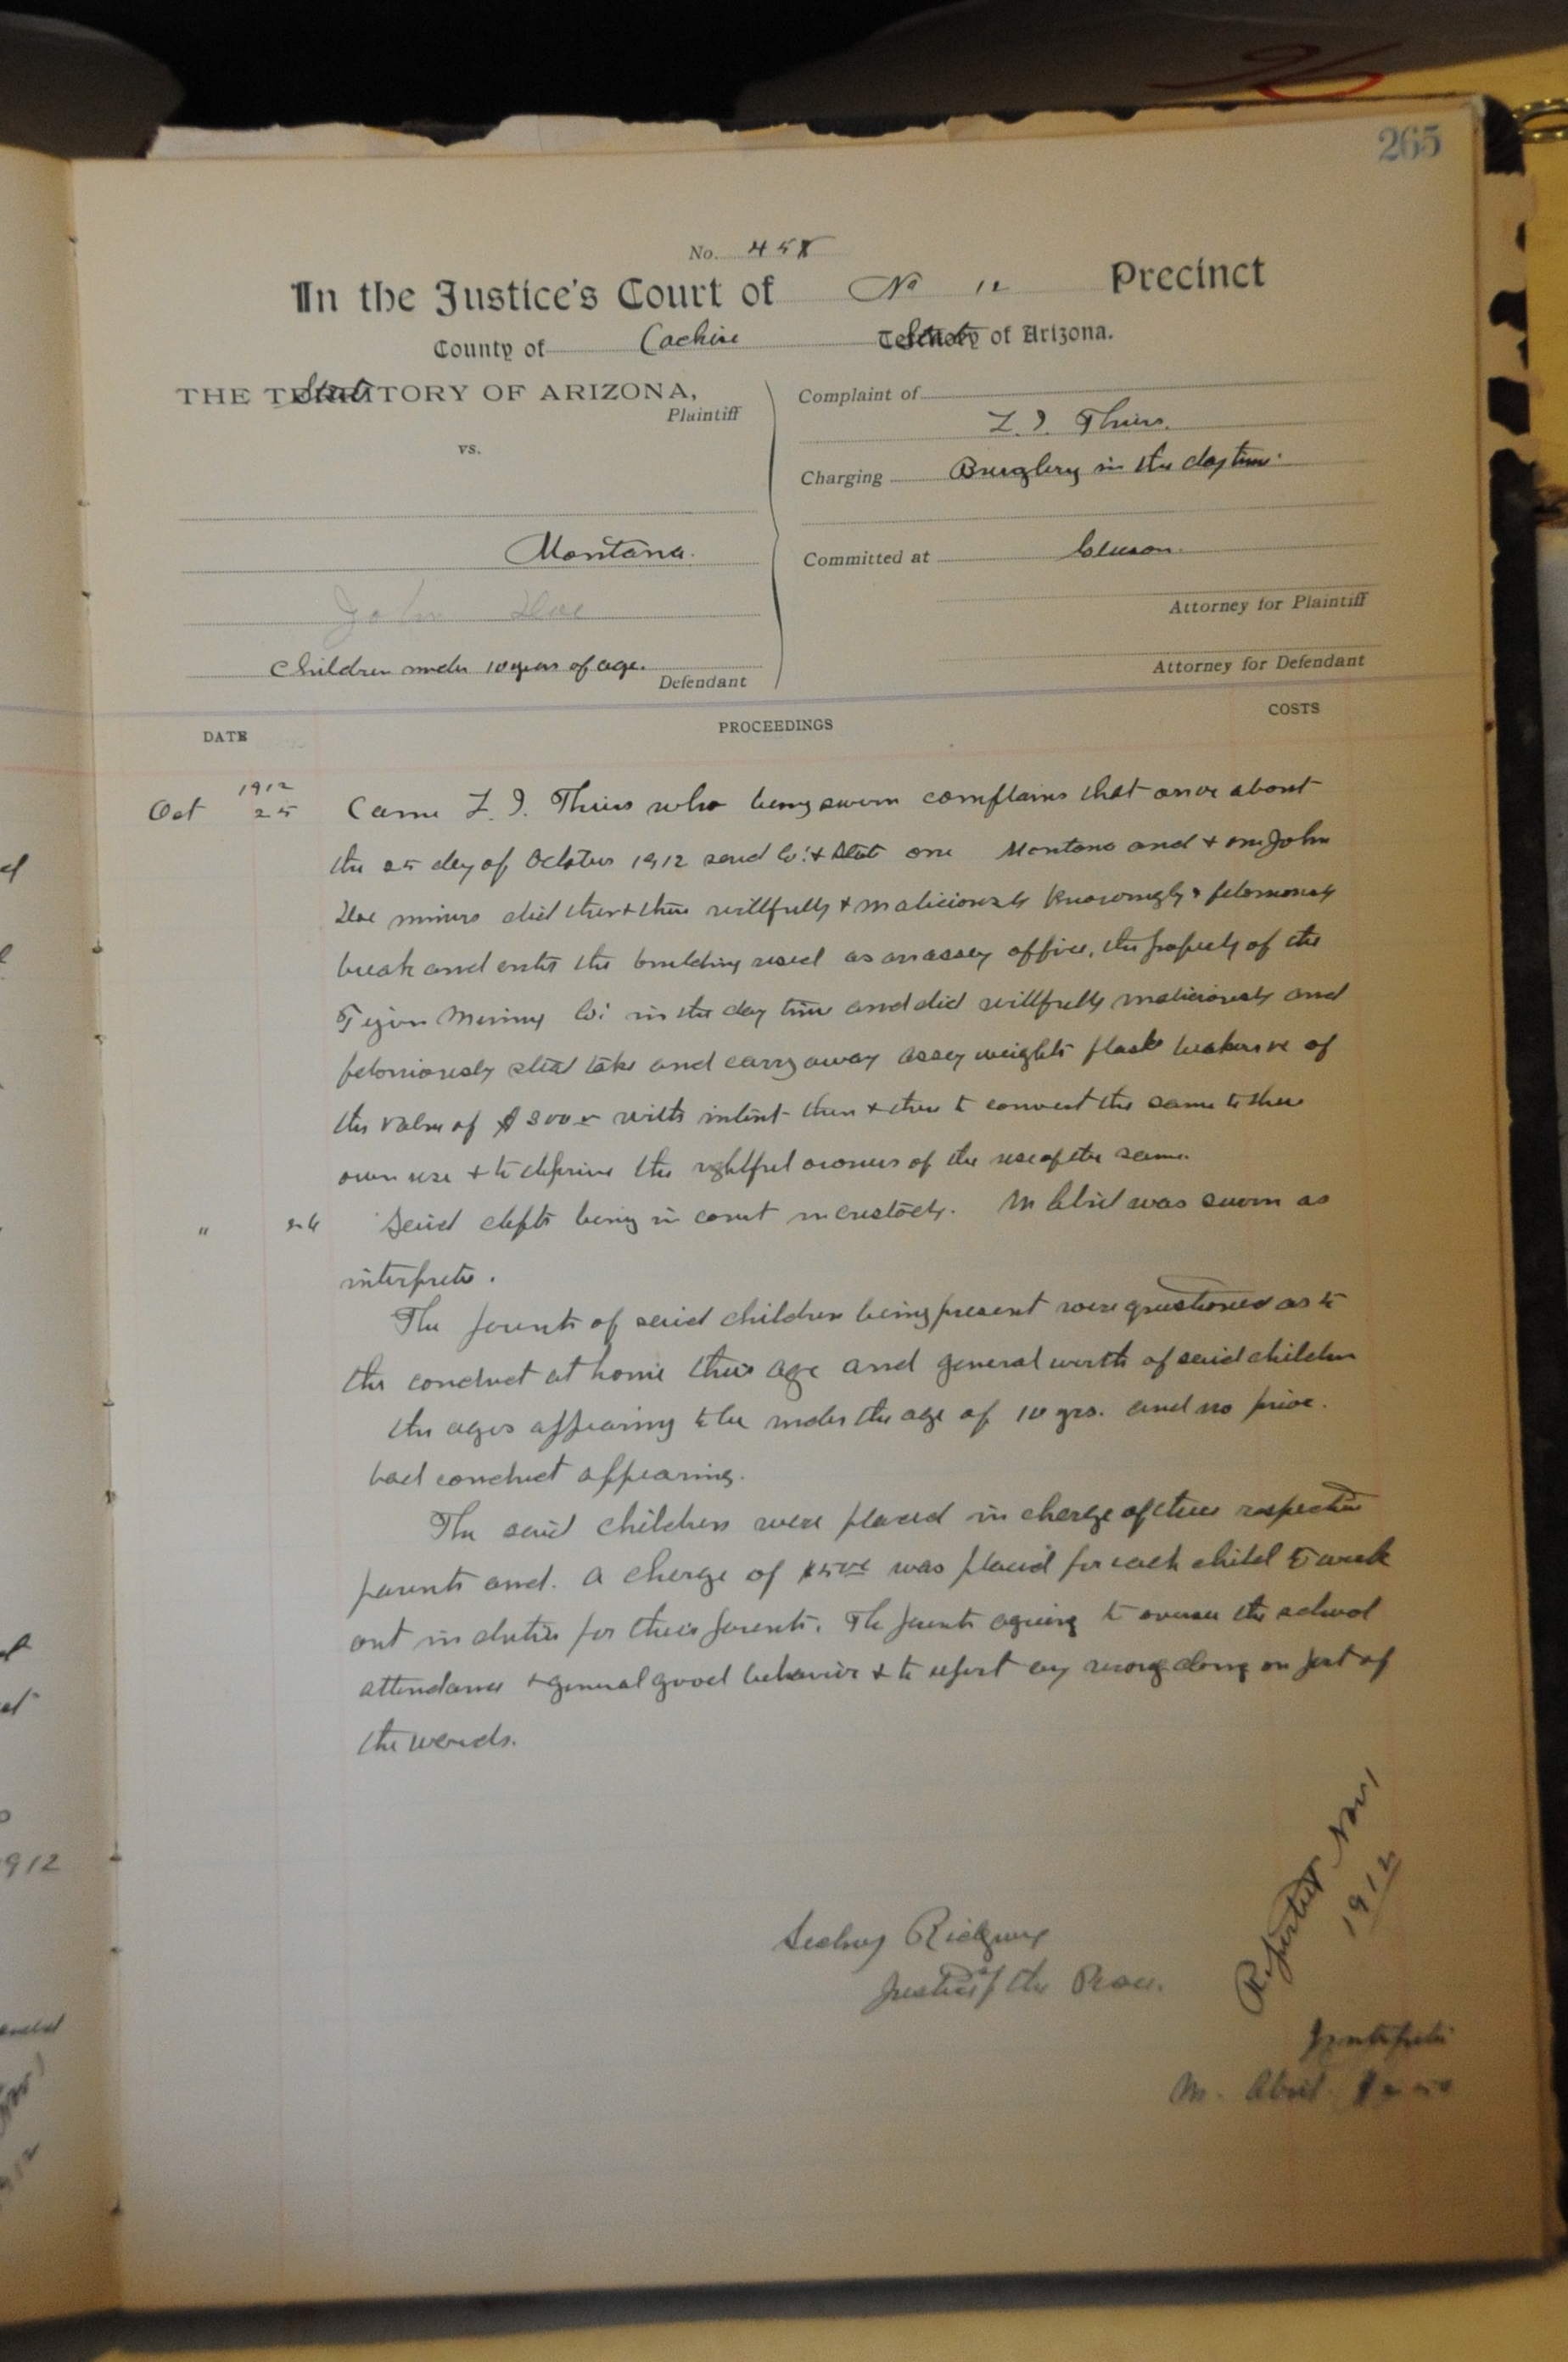 265
No. 458
In the Justice's Court of No 12 Precinct
County of Cochise State of Arizona.
THE State OF ARIZONA,
Plaintiff
vs.
Montana.
John Doe
Children under 10 years of age.
Defendant
Complaint of
Z. I. Thiers.
Charging Burglery in the day time.
Committed at
Attorney for Plaintiff
Attorney for Defendant
DATE PROCEEDINGS COSTS
1912
Oct 25 Came Z. I. Thiers who being sworn complains that on or about
the 25 day of October 1912 said Co. & State one Montana and & one John
Doe minors did then & there willfully & maliciously knowingly & feloniously
break and enter the building used as an assay office, the property of the
Mining Co. in the day time and did willfully maliciously and
feloniously steal take and carry away assay weights flask beakers of
the value of $300 with intent then & there to convert the same to their
own use & to deprive the rightful owners of the use of the same.
" 26 Said defts being in court in custody. M Abril was sworn as
interpreter.
The parents of said children being present were questioned as to
the conduct at home their age and general worth of said children
the ages appearing to be under the age of 10 yrs. and no prior.
bad conduct appearing.
The said children were placed in charge of their respective
parents and. a charge of $5.00 was placed for each child to work
out in duties for their parents. The parents agreing to oversee the school
attendance & general good behavior & to report any wrong doing on part of
the wards.
Sidney Ridgway
Justice of the Peace.
Reported Nov 1
1912
Interpreter
M. Abril